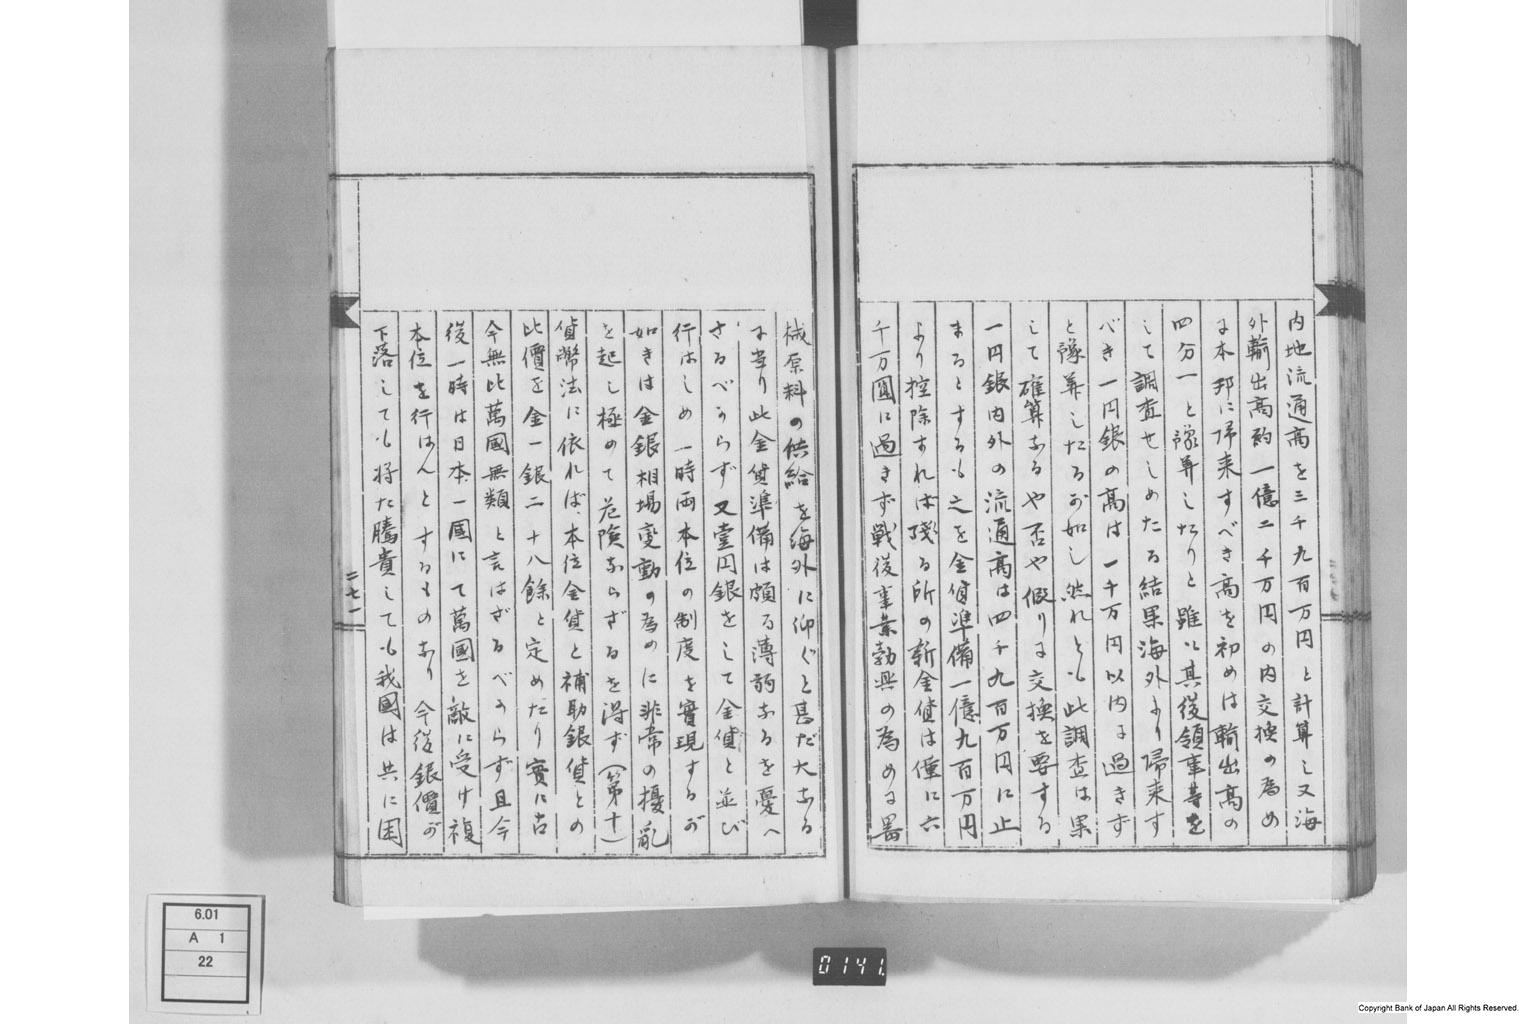 内地流通高を三千九百万円と計算し又海
外輸出高約一億二千万円の内交換の為め
に本邦に帰来すべき高を初めは輸出高の
四分一と豫算したりと雖も其後領事等を
して調査せしめたる結果海外より帰来す
べき一円銀の高は一千万円以内に過きず
と豫算したるが如し然れとも此調査は果
して確算なるや否や假りに交換を要する
一円銀内外の流通高は四千九百万円に止
まるとするも之を金貨準備一億九百万円
より控除すれは残る所の新金貨は僅に六
千万圓に過きず戦後事業勃興の為めに器
械原料の供給を海外に仰ぐと甚だ大なる
に当り此金貨準備は頗る薄弱なるを憂へ
さるべからず又壹円銀をして金貨と並び
行はしめ一時両本位の制度を實現するが
如きは金銀相場変動の為めに非常の擾乱
を起し極めて危険ならざるを得ず(第十)
貨幣法に依れば本位金貨と補助銀貨との
比價を金一銀二十八餘と定めたり實に古
今無比萬國無類と言はざるべからず且今
後一時は日本一國にて萬國を敵に受け複
本位を行はんとするものなり今後銀價が
下落しても将た騰貴しても我國は共に困
二七一
6.01
A 1
22
0141
Copyright Bank of Japan All Rights Reserved.